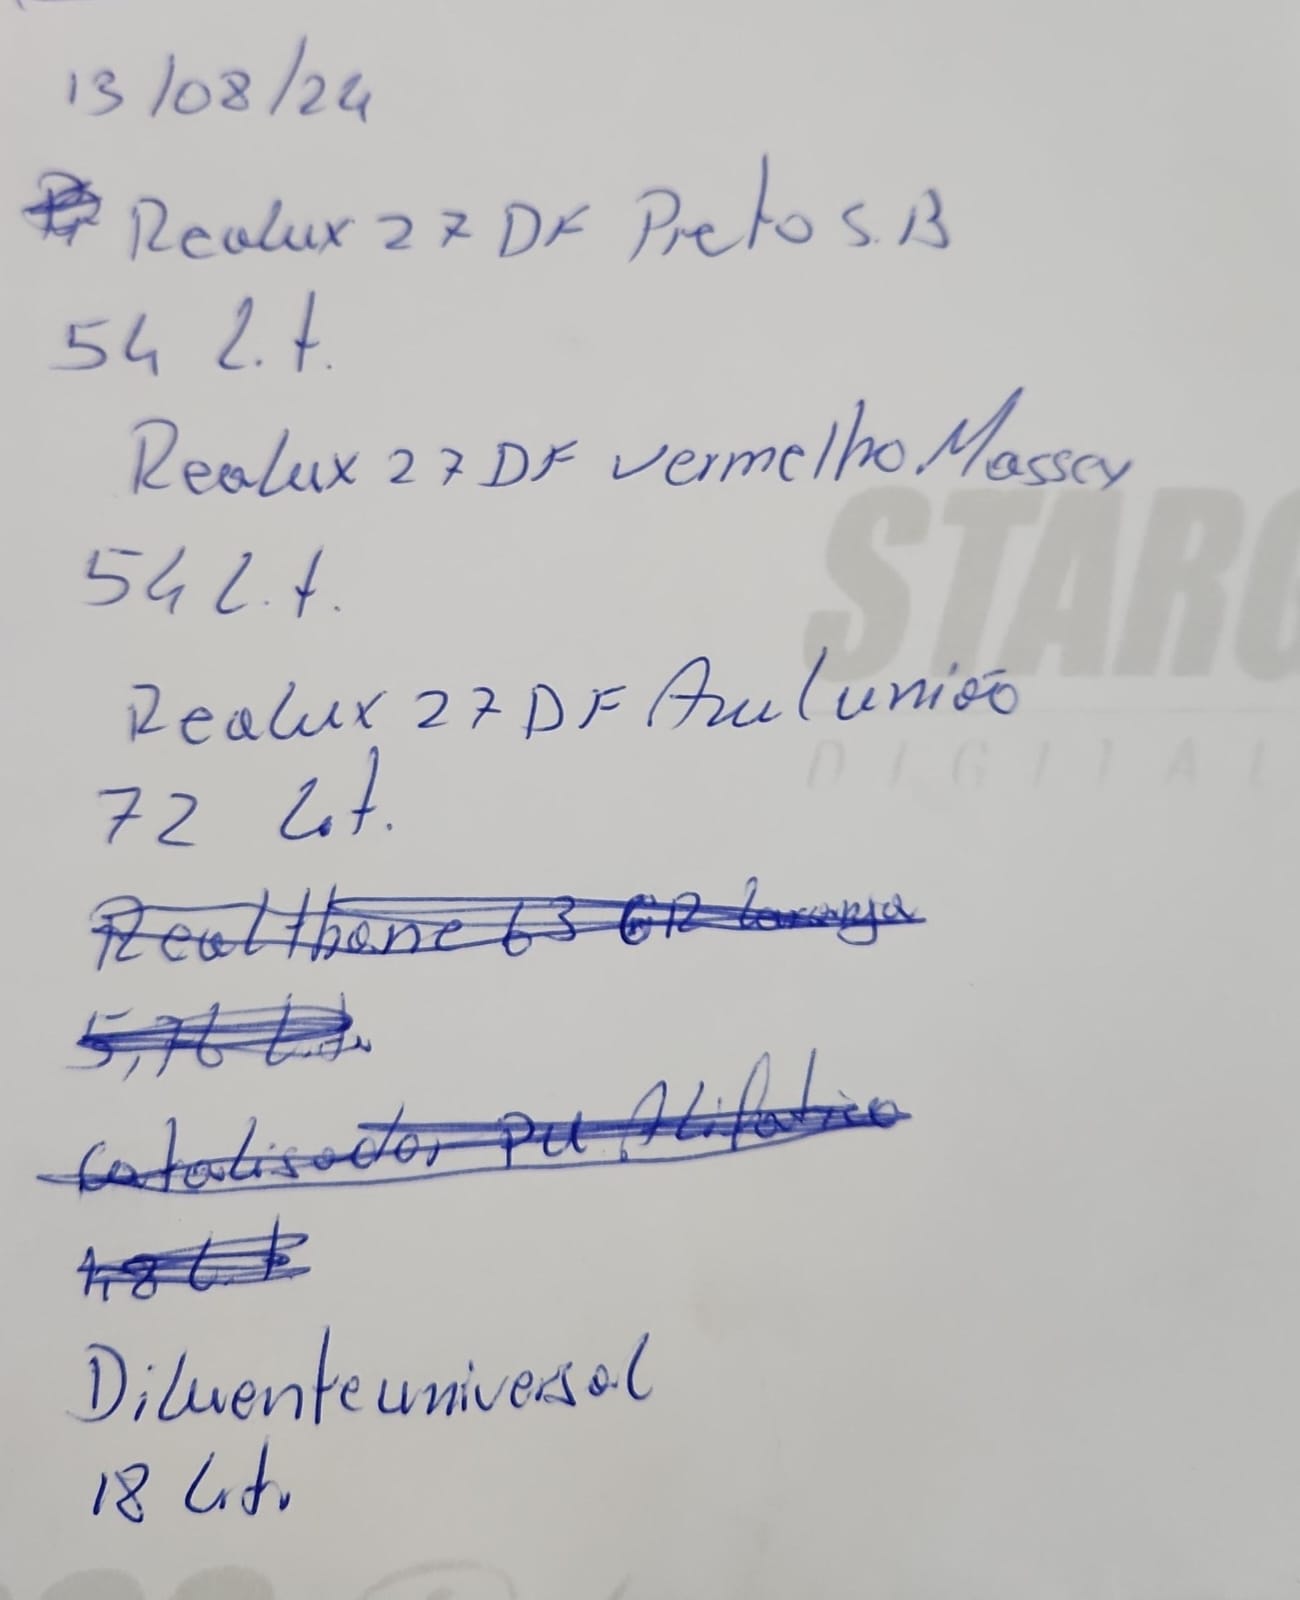 13/08/24
Realux 27 DF Preto S.B
54 L.t.
Realux 27 DF vermelho Massey
54 L.t.
STARG
Realux 27 DF Azul união
DIGITAL
72 L.t.
Realthane 63 GR laranja
5,76 L.t.
Catalisador PU Alifatico
1,8 L.t
Diluente universal
18 L.t.